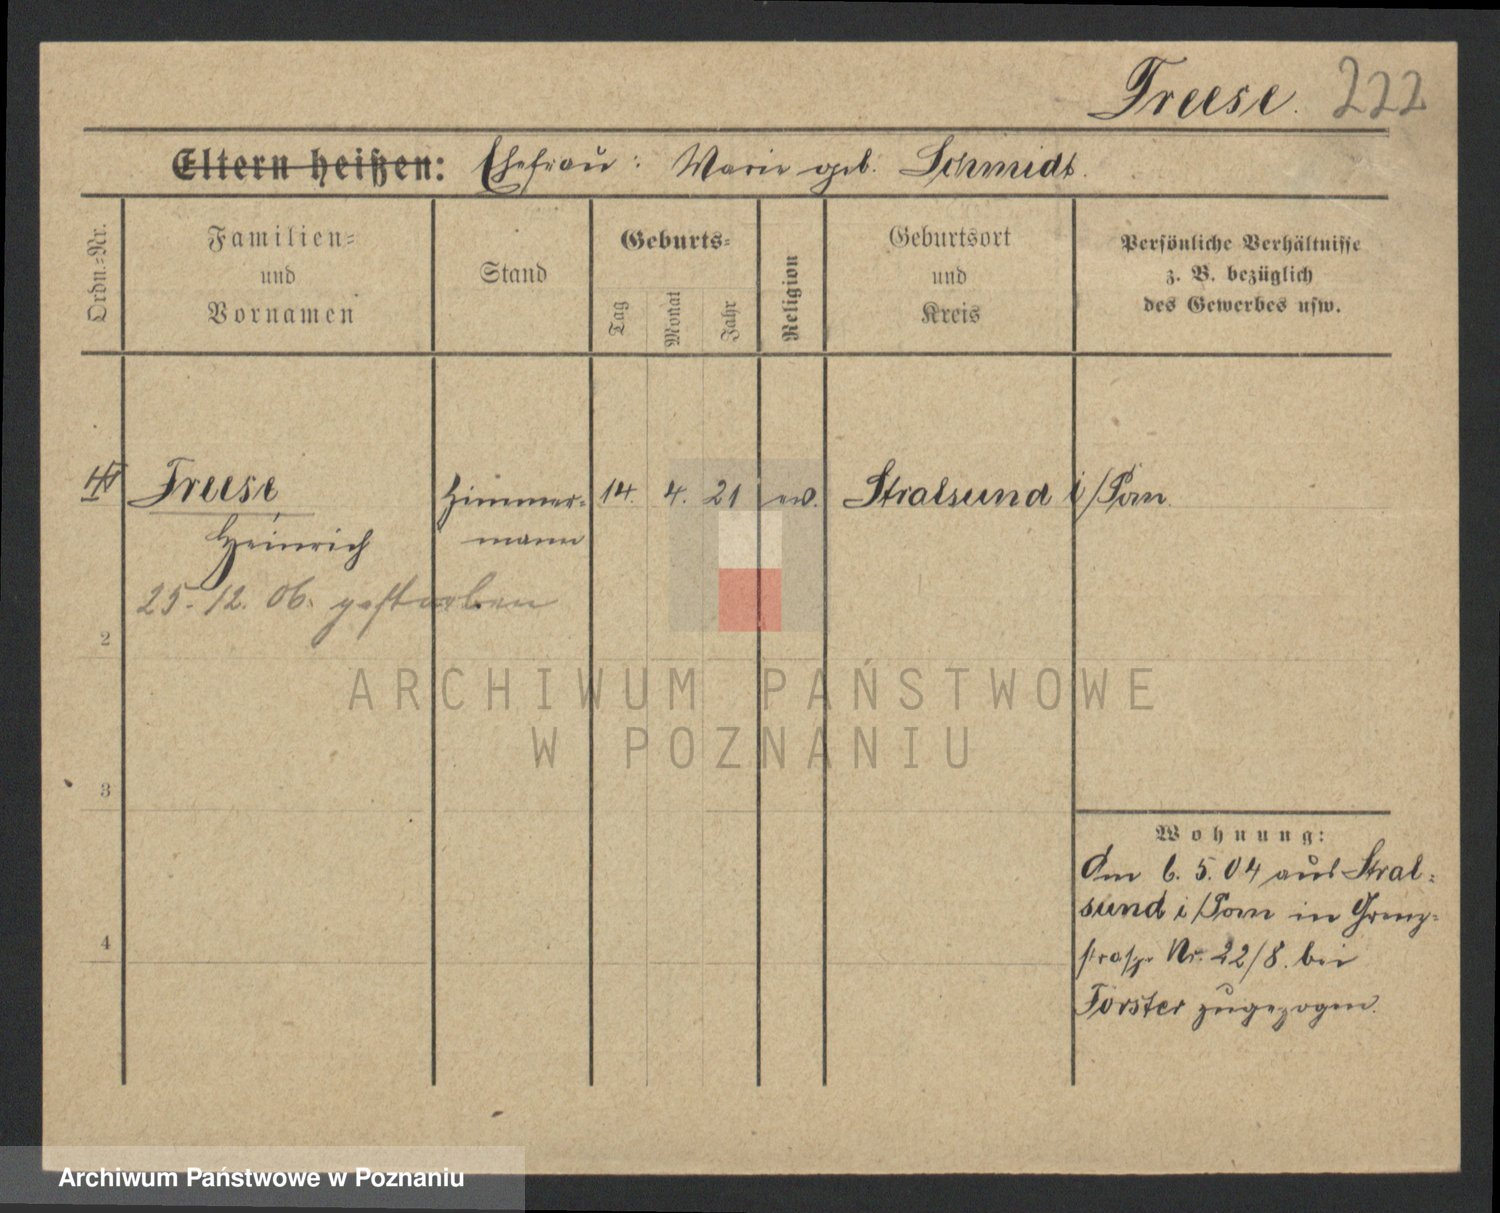 Freese. 222
Eltern heißen: Ehefrau: Marie geb. Schmidt.
Ordn.-Nr.
Familien-
und
Vornamen
Stand
Geburts-
Tag
Monat
Jahr
Religion
Geburtsort
und
Kreis
Persönliche Verhältnisse
z. B. bezüglich
des Gewerbes usw.
Freese Zimmer- 14. 4. 21 ev. Stralsund i/Pom.
Heinrich mann
25.12.06. gestorben
2
3
4
Wohnung:
Am 6.5.04 aus Stral-
sund i/Pom in Grenz-
straße Nr. 22/8. bei
Förster zugezogen.
ARCHIWUM PAŃSTWOWE
W POZNANIU
Archiwum Państwowe w Poznaniu